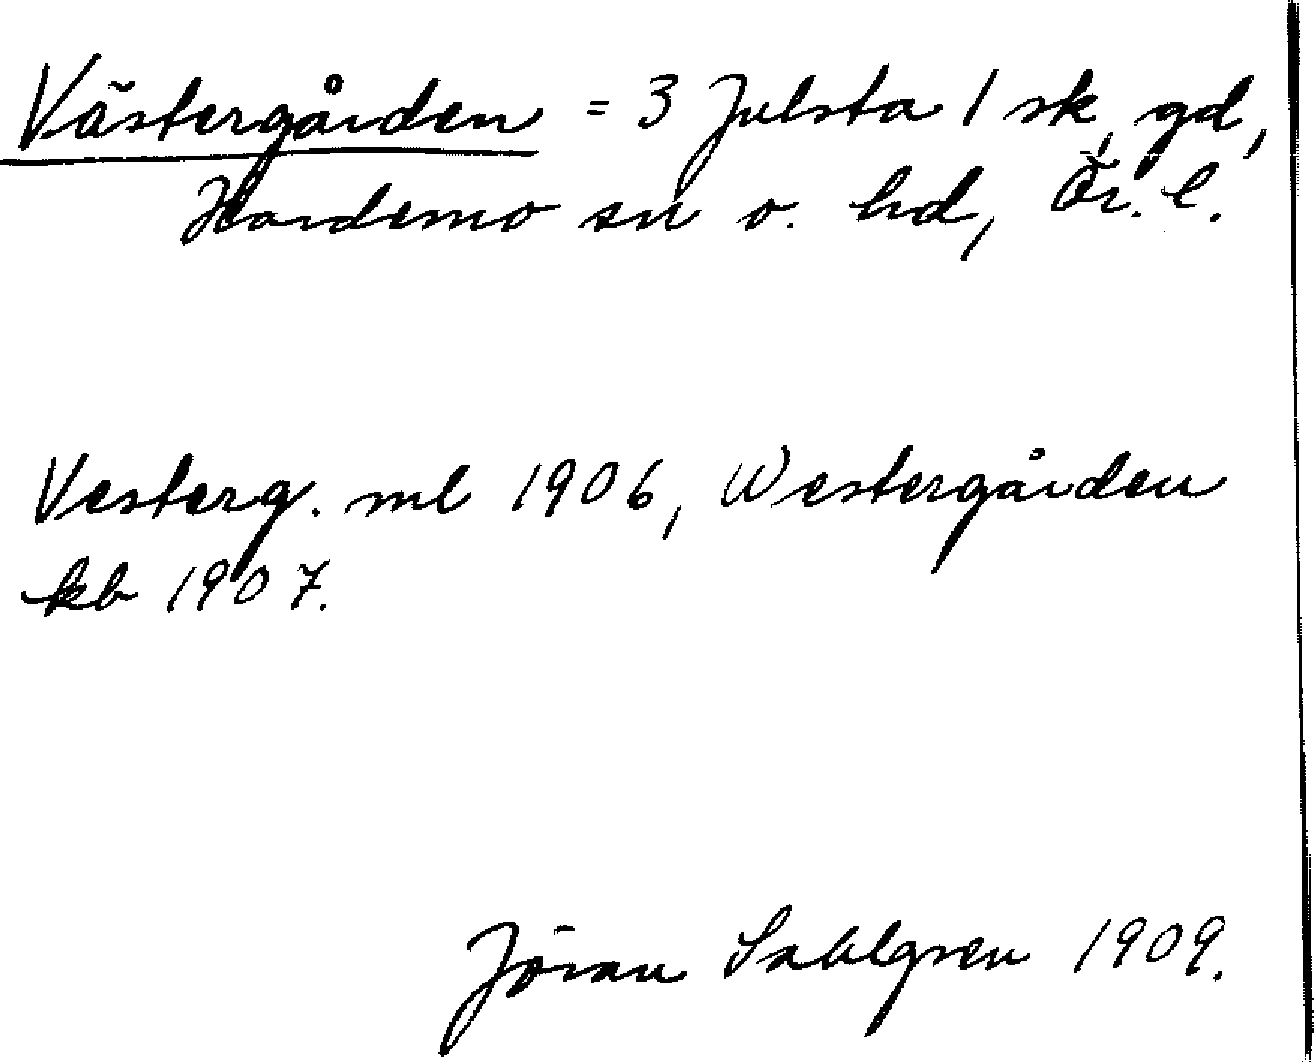 Västergården = 3 Julsta 1 sk, gd,
Hardemo sn o. hd, Ör. l.
Vesterg. ml 1906, Westergården
kb 1907.
Jöran Sahlgren 1909.